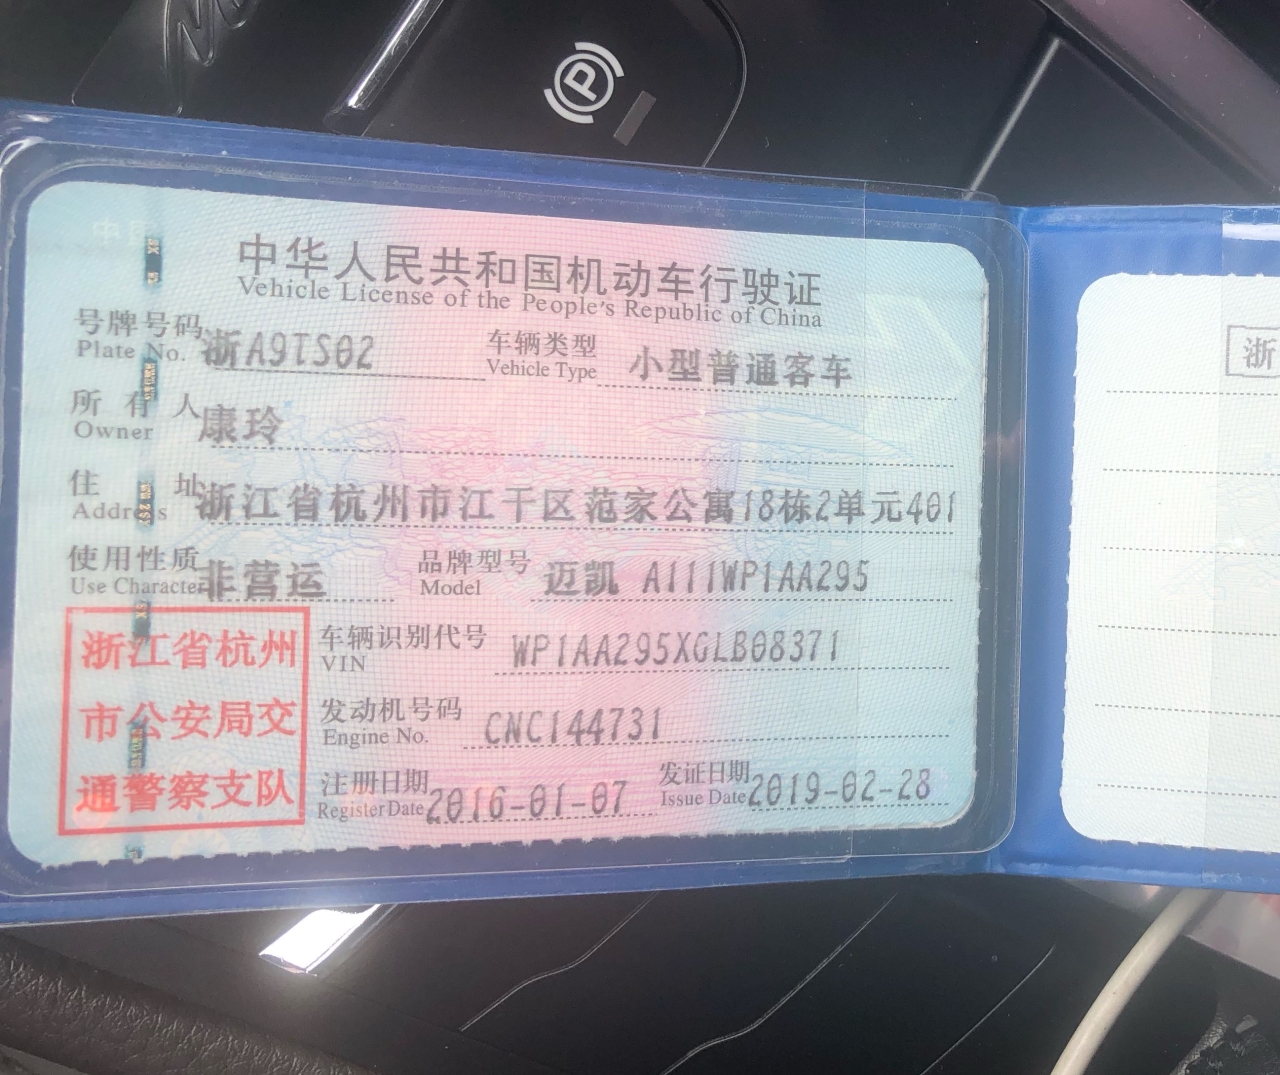 中华人民共和国机动车行驶证
Vehicle License of the People's Republic of China
号牌号码 浙A9TS02 车辆类型 小型普通客车
Plate No. Vehicle Type
所有人 康玲
Owner
住址 浙江省杭州市江干区范家公寓18栋2单元401
Address
使用性质 非营运 品牌型号 迈凯 A111WP1AA295
Use Character Model
浙江省杭州
市公安局交
通警察支队
车辆识别代号 WP1AA295XGLB08371
VIN
发动机号码 CNC144731
Engine No.
注册日期 2016-01-07 发证日期 2019-02-28
Register Date Issue Date
浙
P